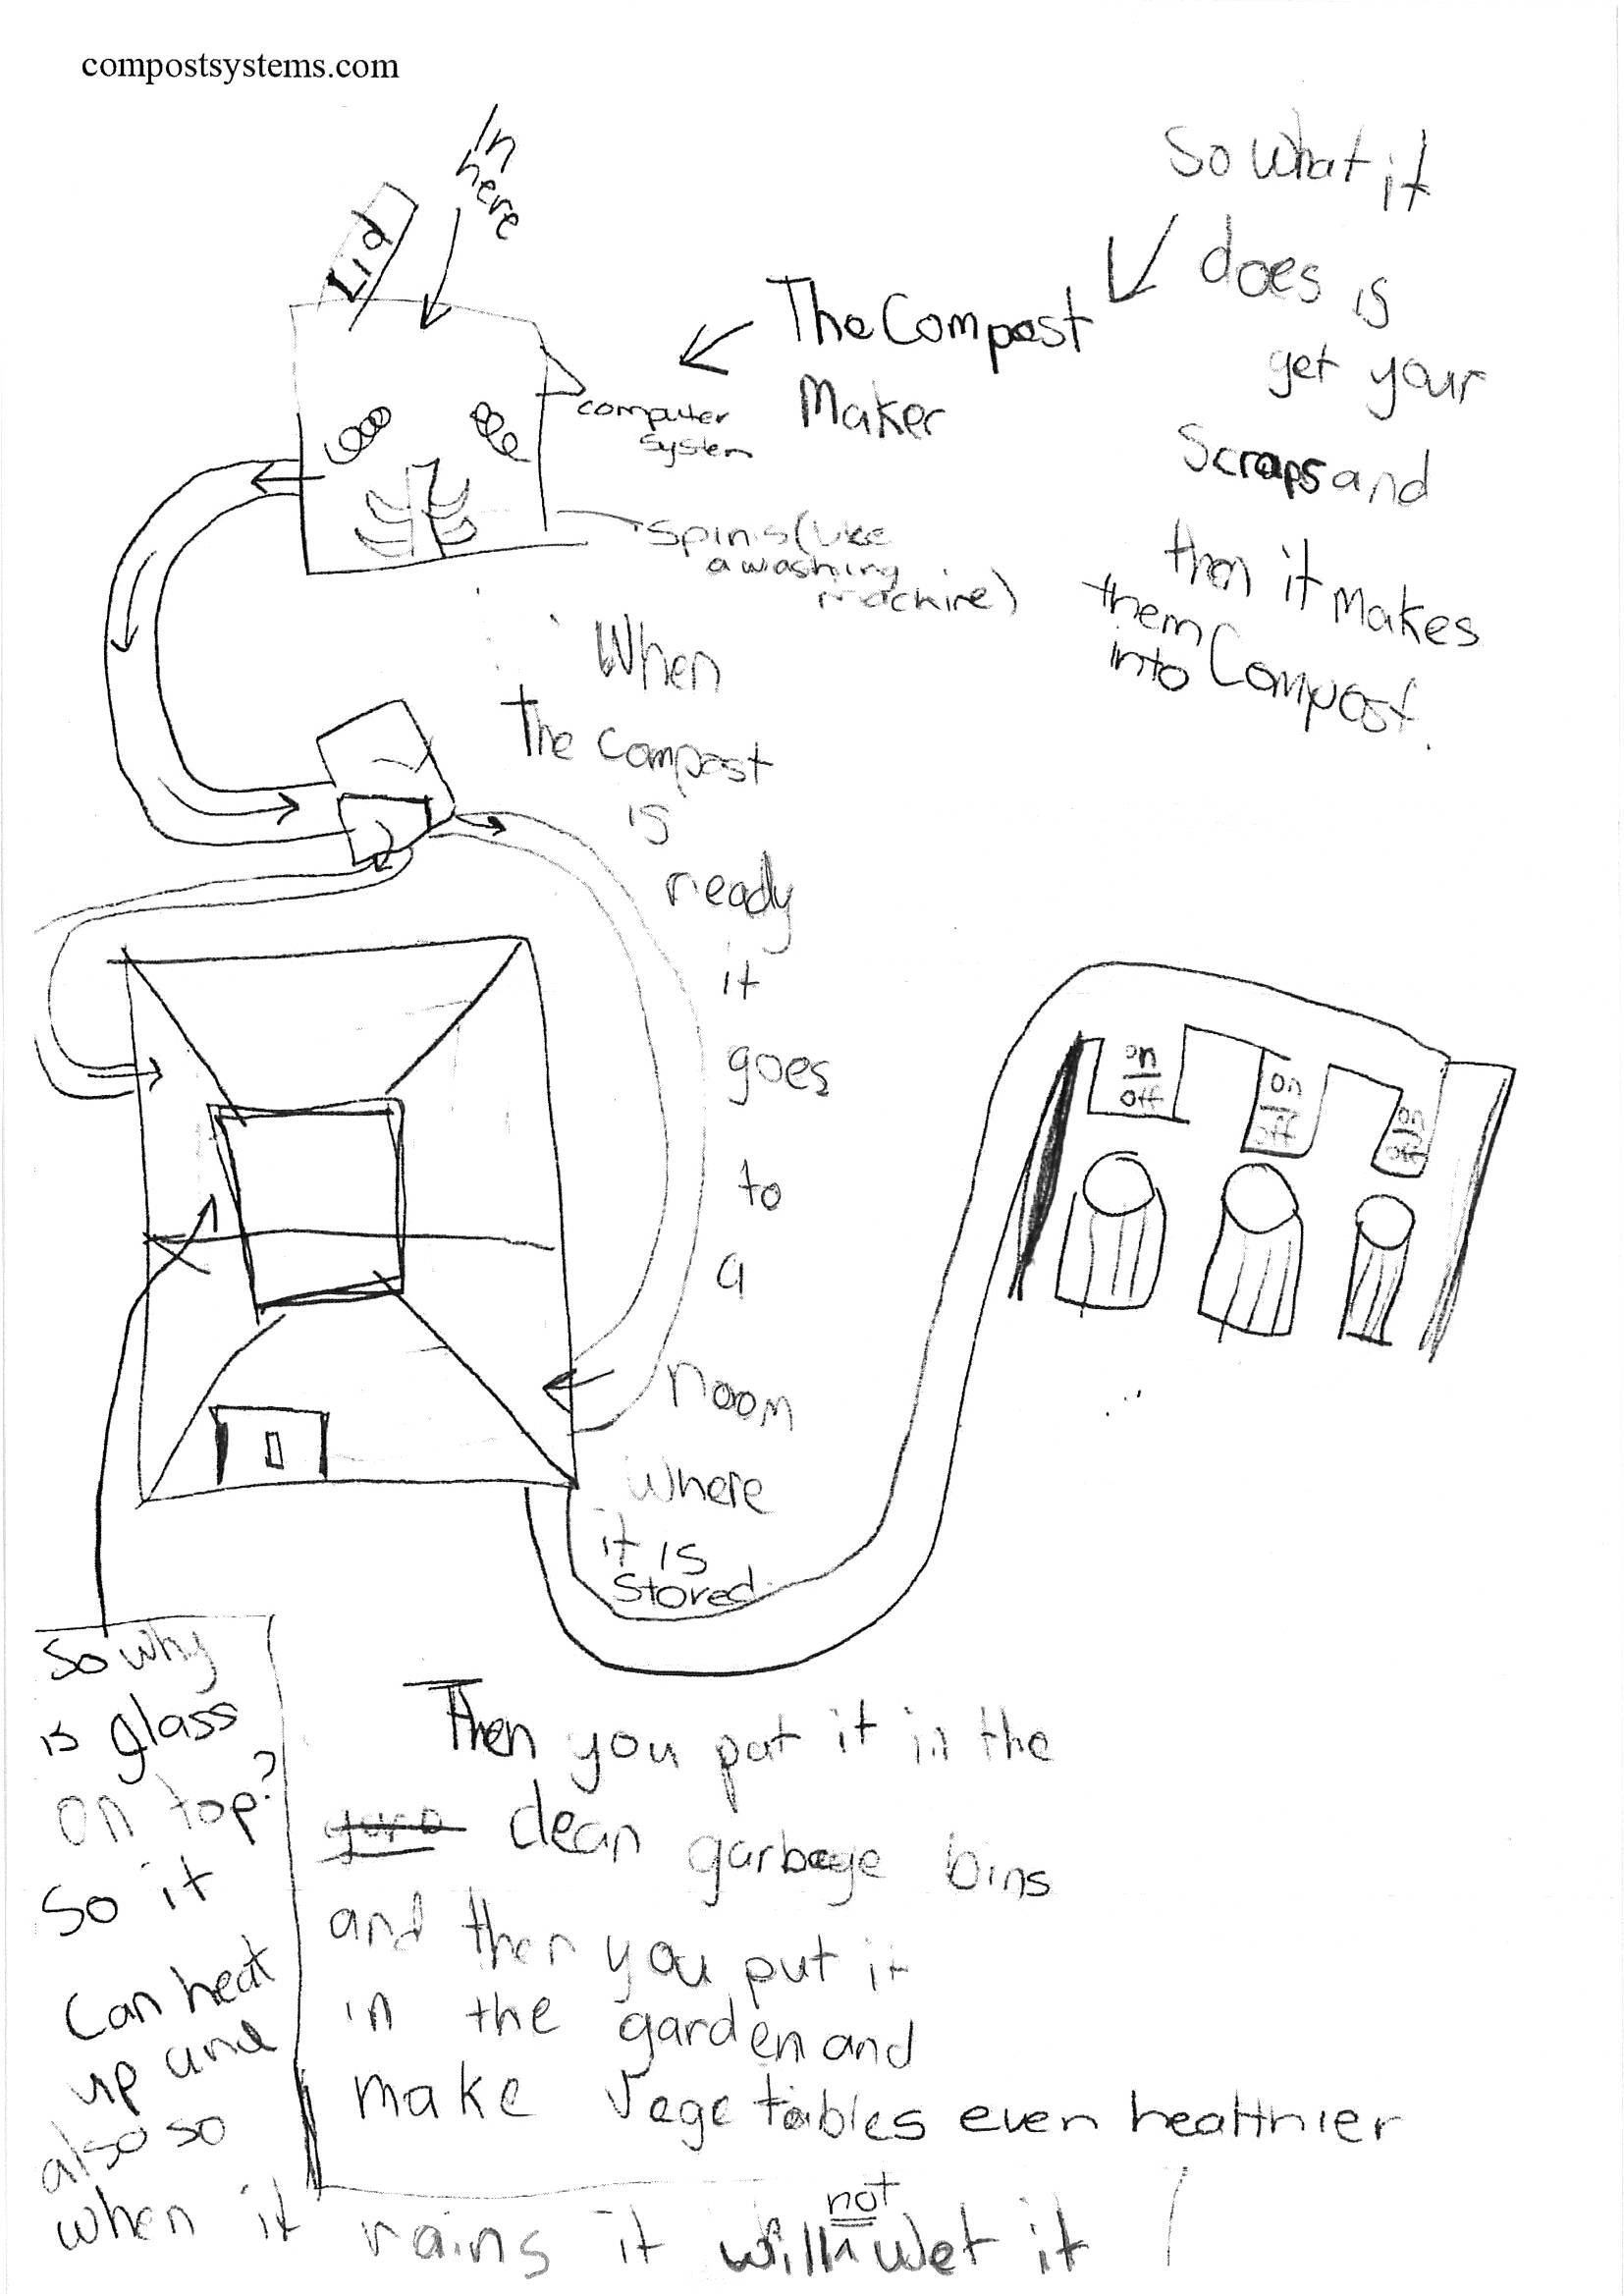 compostsystems.com
In
here
Lid
The Compost
Maker
computer
system
spins (like
a washing
machine)
So what it
does is
get your
Scraps and
then it makes
them
into Compost.
When
the compost
is
ready
it
goes
to
a
room
where
it is
stored
on
off
on
off
on
off
So why
is glass
on top?
So it
can heat
up and
also so
when it rains it will not wet it
Then you put it in the
clean garbage bins
and then you put it
in the garden and
make vegetables even healthier